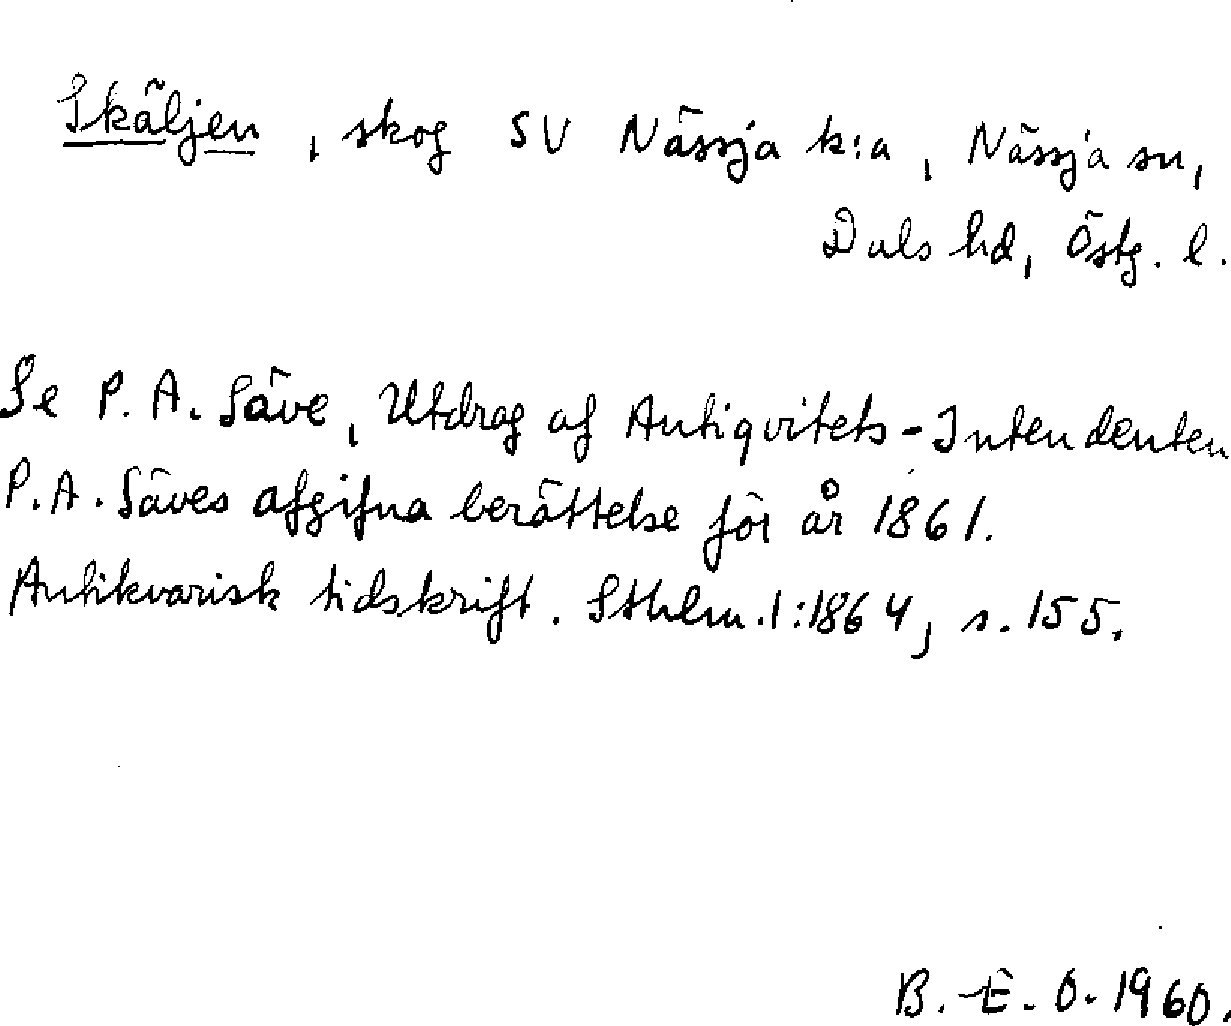 Skäljen, skog SV Nässja k:a, Nässja sn,
Dals hd, Östg. l.
Se P. A. Säve, Utdrag af Antiqvitets-Intendenten
P. A. Säves afgifna berättelse för år 1861.
Antikvarisk tidskrift. Sthlm. 1:1864, s. 155.
B.-E. O. 1960.